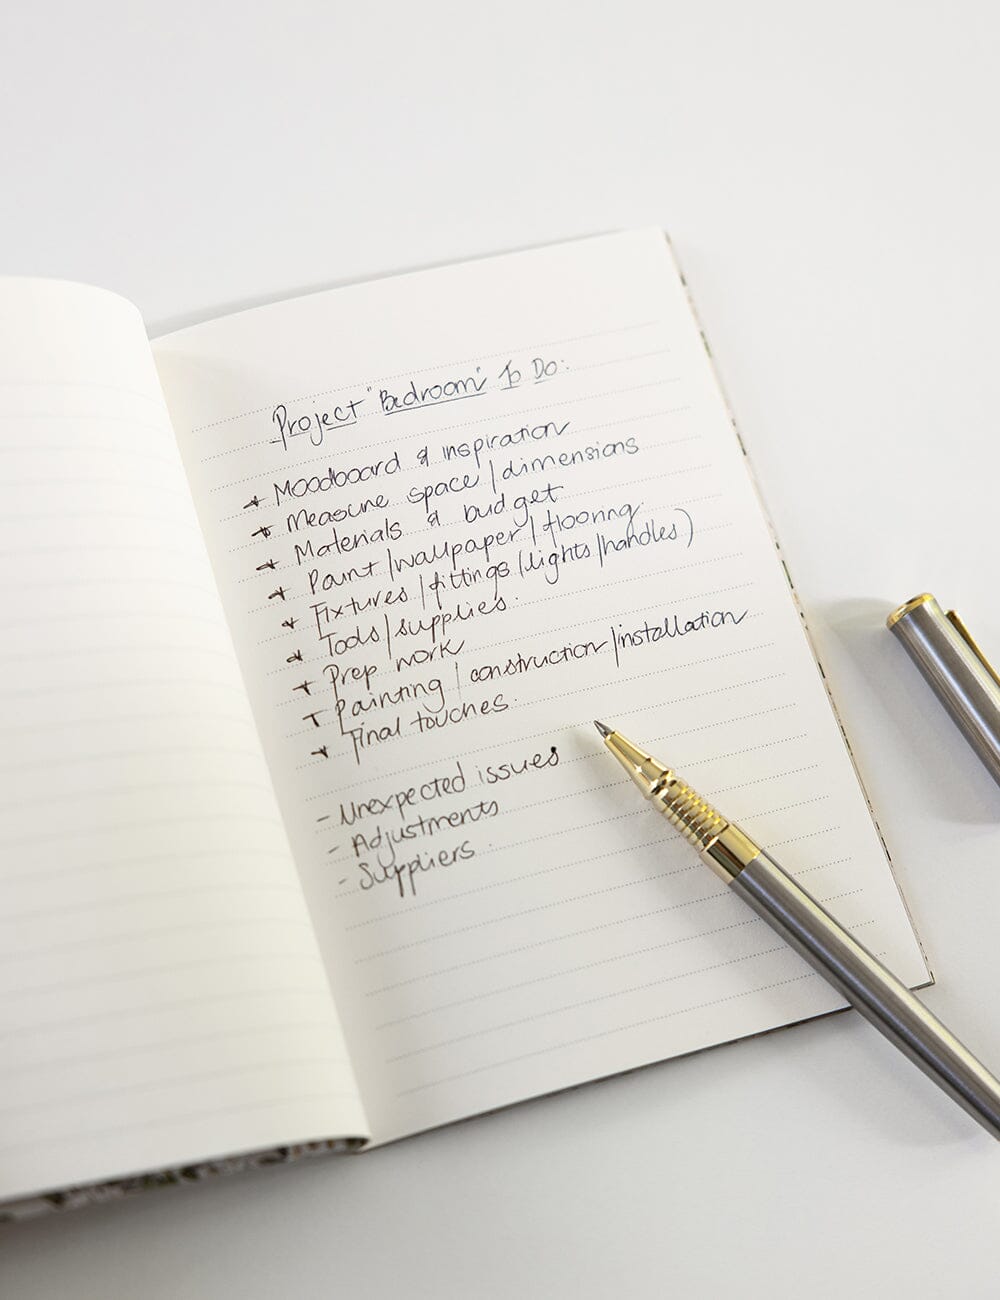 Project "Bedroom" To Do:
* Moodboard & inspiration
* Measure space / dimensions
* Materials & budget
* Paint / wallpaper / flooring
* Fixtures / fittings (lights / handles)
* Tools / supplies.
* Prep work
* Painting / construction / installation
* Final touches.
- Unexpected issues
- Adjustments
- Suppliers.